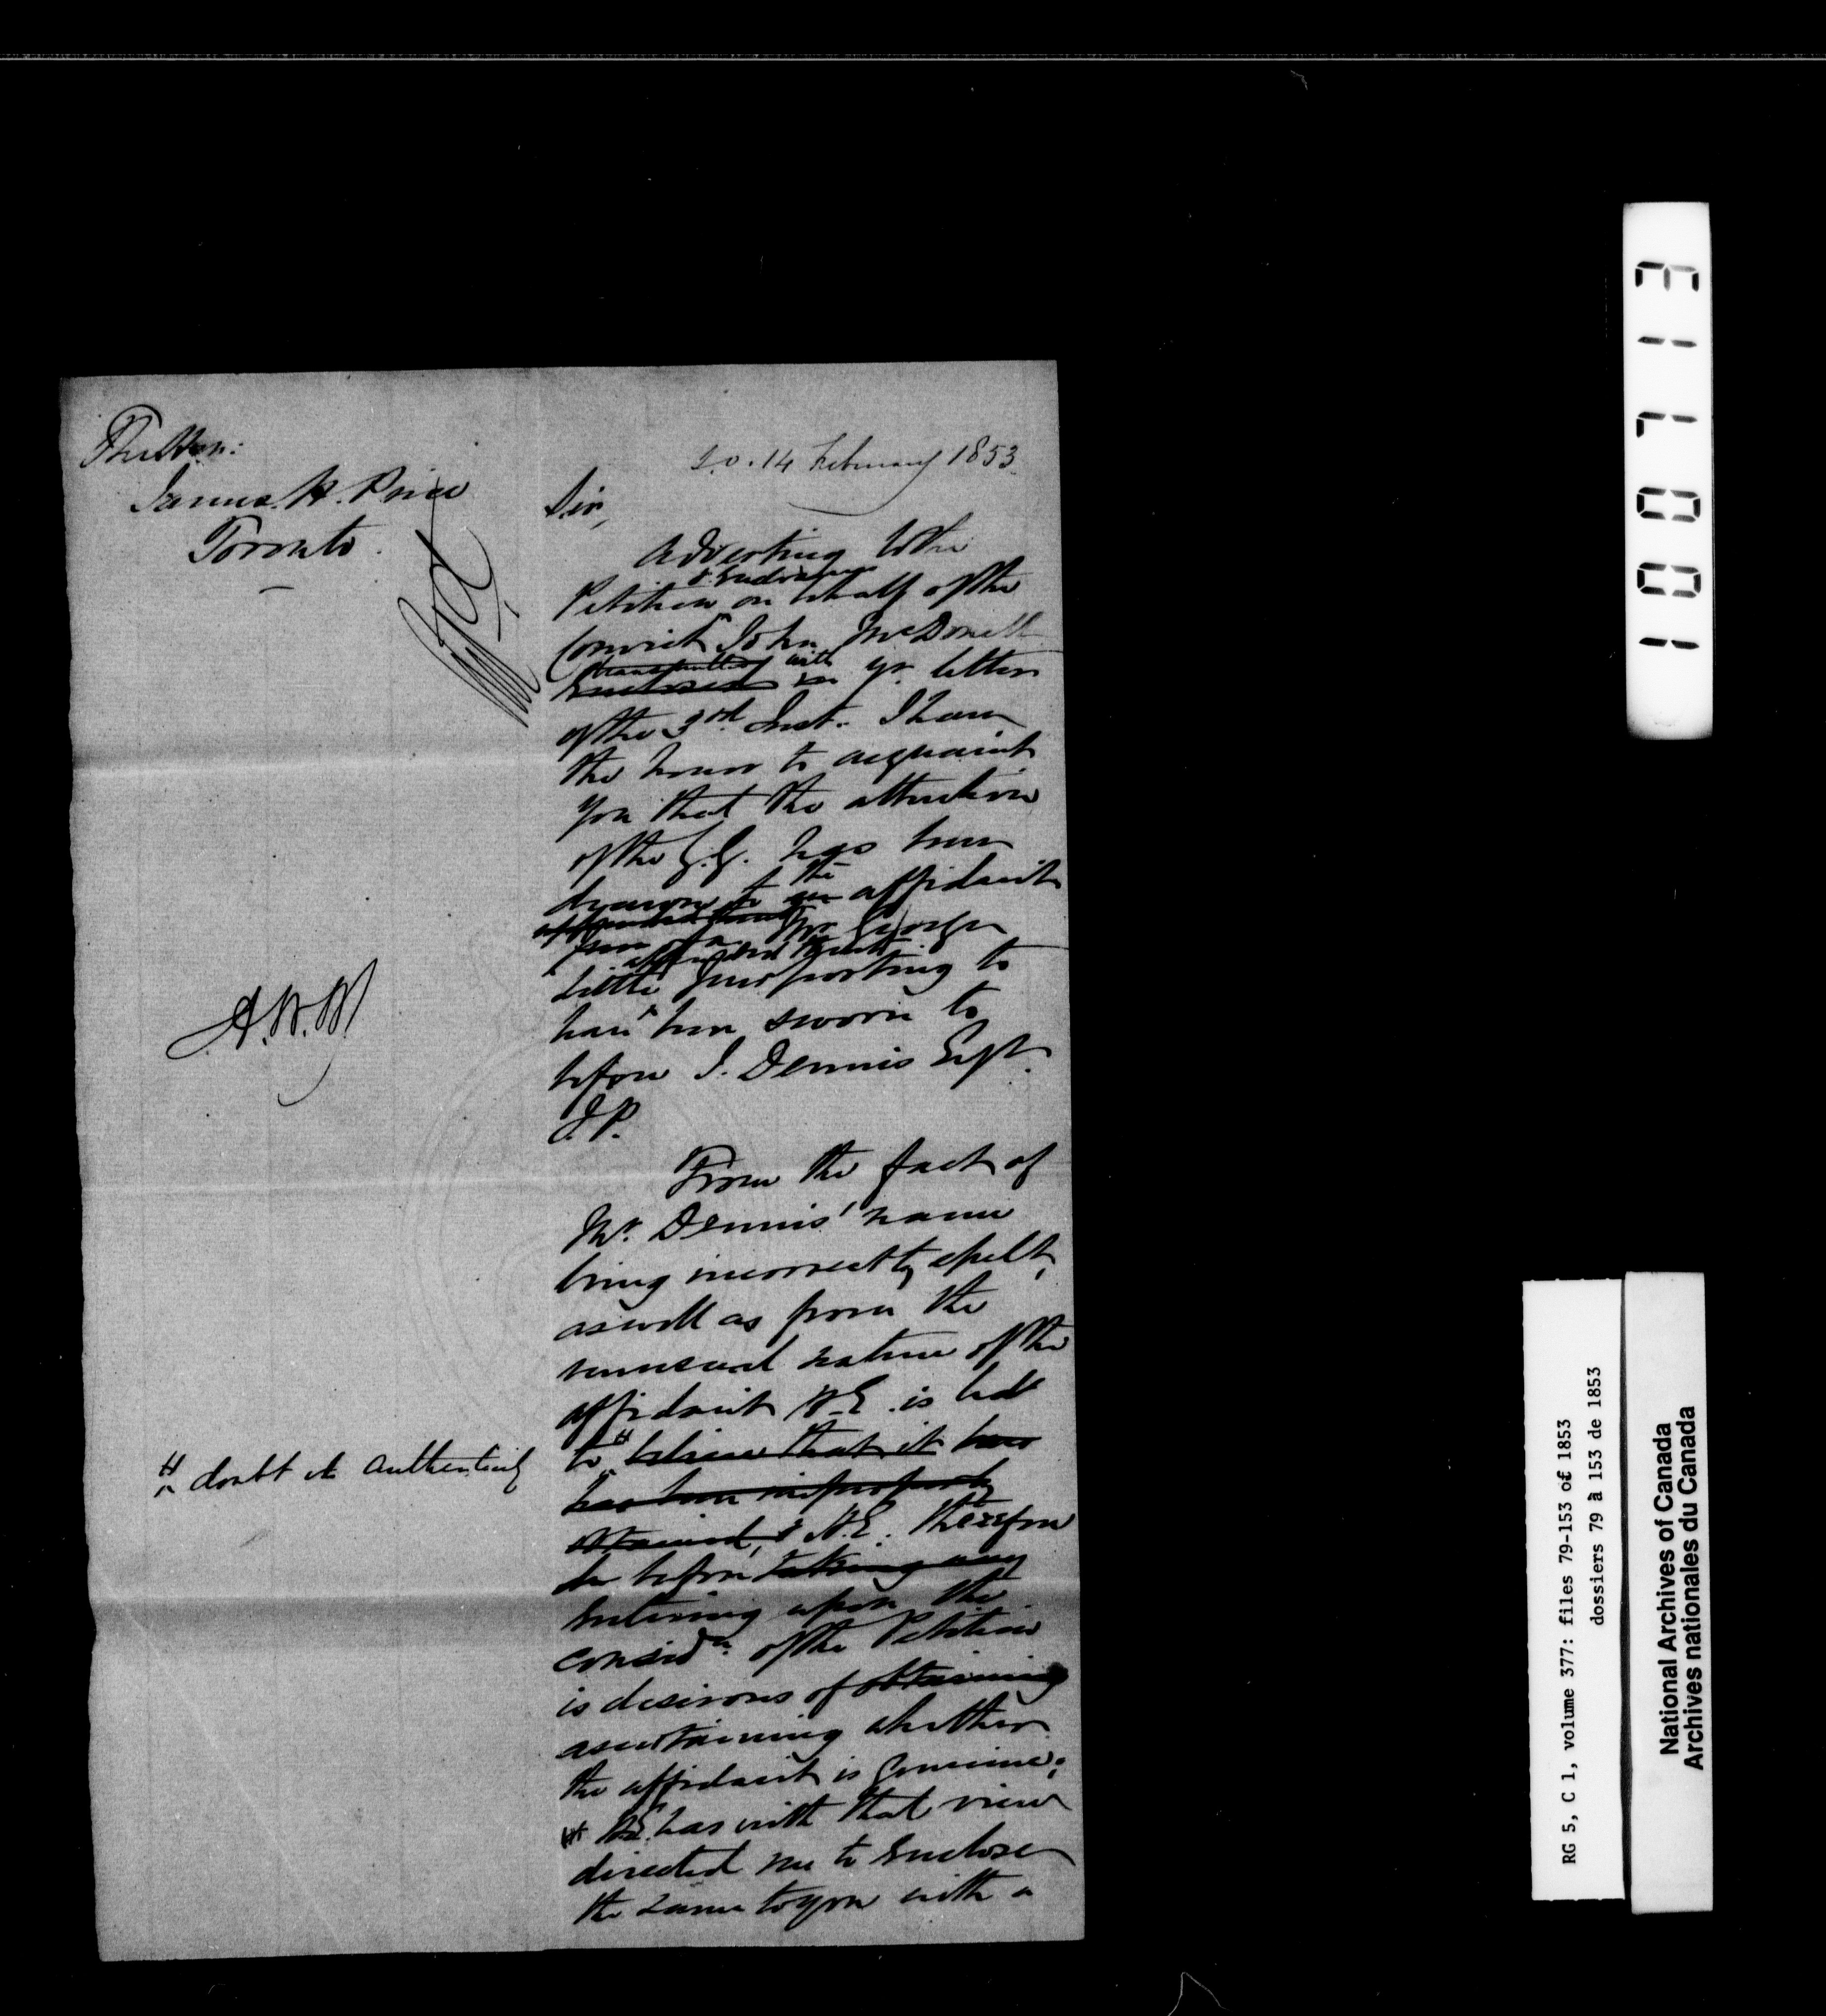 The Hon:
James H. Price
Toronto.
S.O. 14 February 1853
Sir,
Adverting to the
Petition & Enclosures on behalf of the
Convict John McDonell
transmitted with
enclosed in yr. letter
of the 3rd Inst. I have
the honor to acquaint
you that the attention
of the G.G. has been
drawn to an the affidavit
appended thereto
of a Mr George
appended thereto
Little purporting to
have been sworn to
before J. Dennis Esqr.
J.P.
From the fact of
Mr. Dennis' name
being incorrectly spelt,
as well as from the
unusual nature of the
affidavit H.E. is led
to believe that it has
has been improperly
obtained, & H.E. therefore
before taking any
entering upon the
considn. of the Petition
is desirous of obtaining
ascertaining whether
the affidavit is genuine;
H.E. has with that view
directed me to enclose
the same to you with a
A.N.M
# doubt its authenticity
1001713
RG 5, C 1, volume 377: files 79-153 of 1853
dossiers 79 à 153 de 1853
National Archives of Canada
Archives nationales du Canada